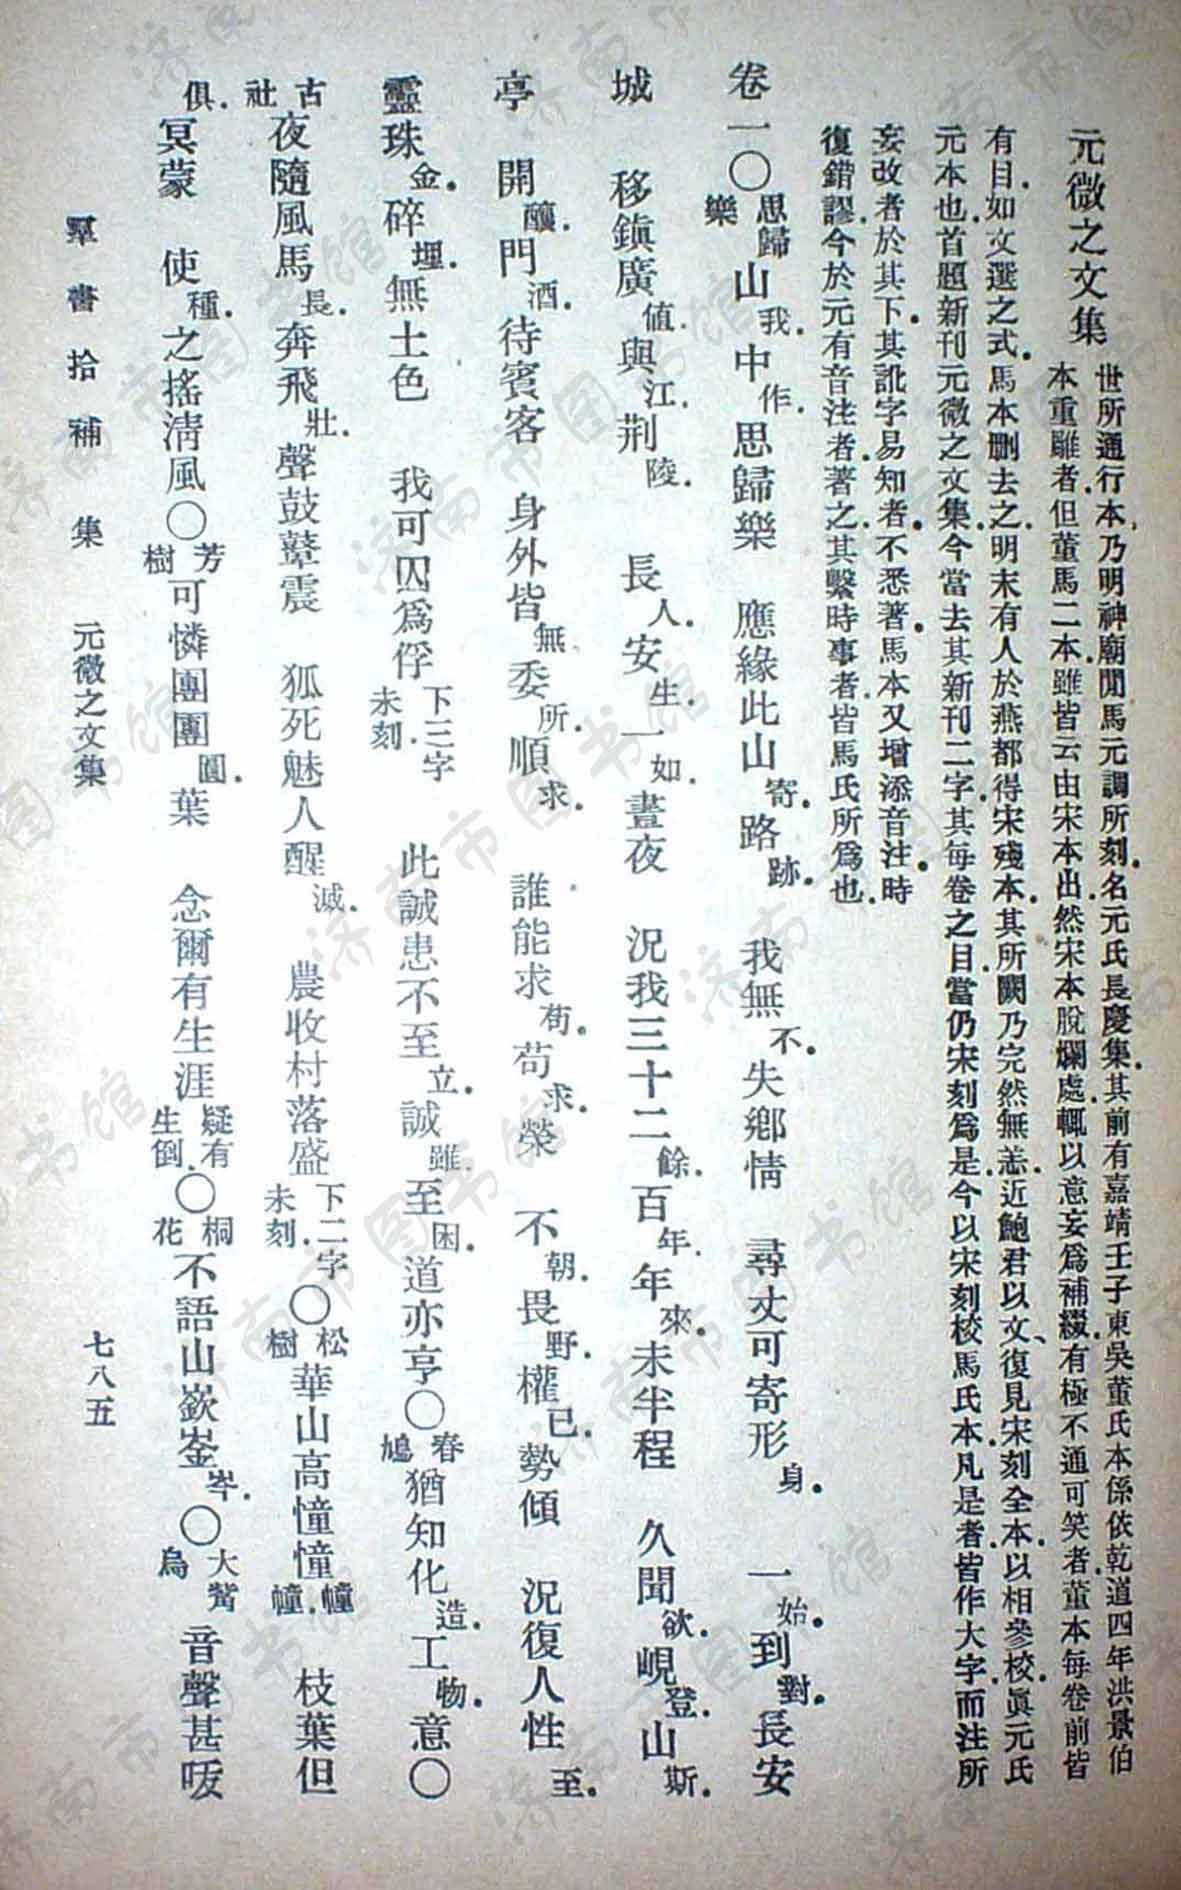 元微之文集
世所通行本.乃明神廟閒馬元調所刻.名元氏長慶集.其前有嘉靖壬子東吳董氏本係依乾道四年洪景伯
本重雕者.但董馬二本.雖皆云由宋本出.然宋本脫爛處.輒以意妄爲補綴.有極不通可笑者.董本每卷前皆
有目.如文選之式.馬本刪去之.明末有人於燕都得宋殘本.其所闕乃完然無恙.近鮑君以文、復見宋刻全本.以相參校.眞元氏
元本也.首題新刊元微之文集.今當去其新刊二字.其每卷之目.當仍宋刻爲是.今以宋刻校馬氏本.凡是者.皆作大字.而注所
妄改者於其下.其訛字易知者.不悉著.馬本又增添音注.時
復錯謬.今於元有音注者.著之.其繫時事者.皆馬氏所爲也.
卷一〇思歸樂山我.中作.思歸樂 應緣此山寄.路跡. 我無不.失鄉情 尋丈可寄形身. 一始.到對.長安
城 移鎭廣值.與江.荆陵. 長人.安生.一如.晝夜 況我三十二餘.百年.年來.未半程 久聞欲.峴登.山斯.
亭 開釀.門酒.待賓客 身外皆無.委所.順求. 誰能求苟.苟求.榮 不朝.畏野.權已.勢傾 況復人性至.
靈珠金.碎埋.無土色 我可囚爲俘下三字未刻. 此誠患不至立.誠雖.至困.道亦亨〇春鳩猶知化造.工物.意〇
古社夜隨風馬長.奔飛壯.聲鼓鼙震 狐死魅人醒滅. 農收村落盛下二字未刻.〇松樹華山高憧憧幢幢. 枝葉但
俱.冥蒙 使種.之搖淸風〇芳樹可憐團團圓.葉 念爾有生涯疑有生倒.〇桐花不語山嶔崟岑.〇大觜烏 音聲甚㕙
羣書拾補 集 元微之文集 七八五